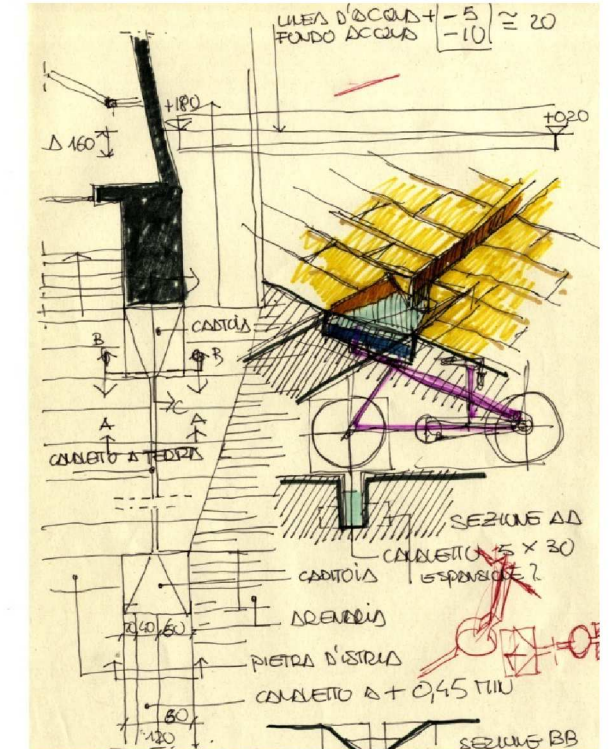 LINEA D'ACQUA + -5 ≅ 20
FONDO ACQUA -10
+180
+020
Δ 160
CADITOIA
B B
C
A A
CANALETTO A TERRA
SEZIONE AA
CANALETTO 15 X 30
ESPANSIONE ?
CADITOIA
ARENARIA
40 60
PIETRA D'ISTRIA
CANALETTO A + 0,45 MIN
60
120
SEZIONE BB